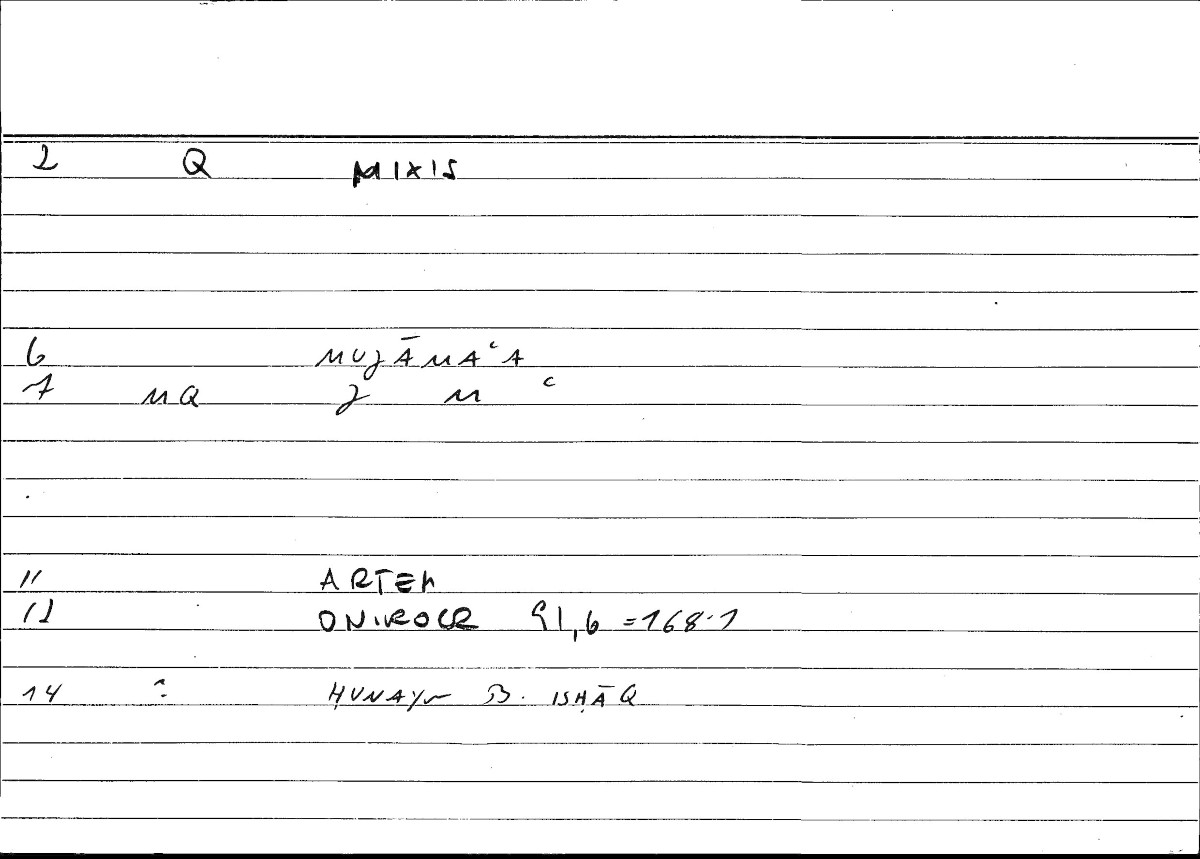 2 Q MIXIS
6 MUJĀMAʿA
7 MQ J M ʿ
11 ARTEM
12 ONIROCR 91,6 =168.1
14 : ḤUNAYN B. ISḤĀQ